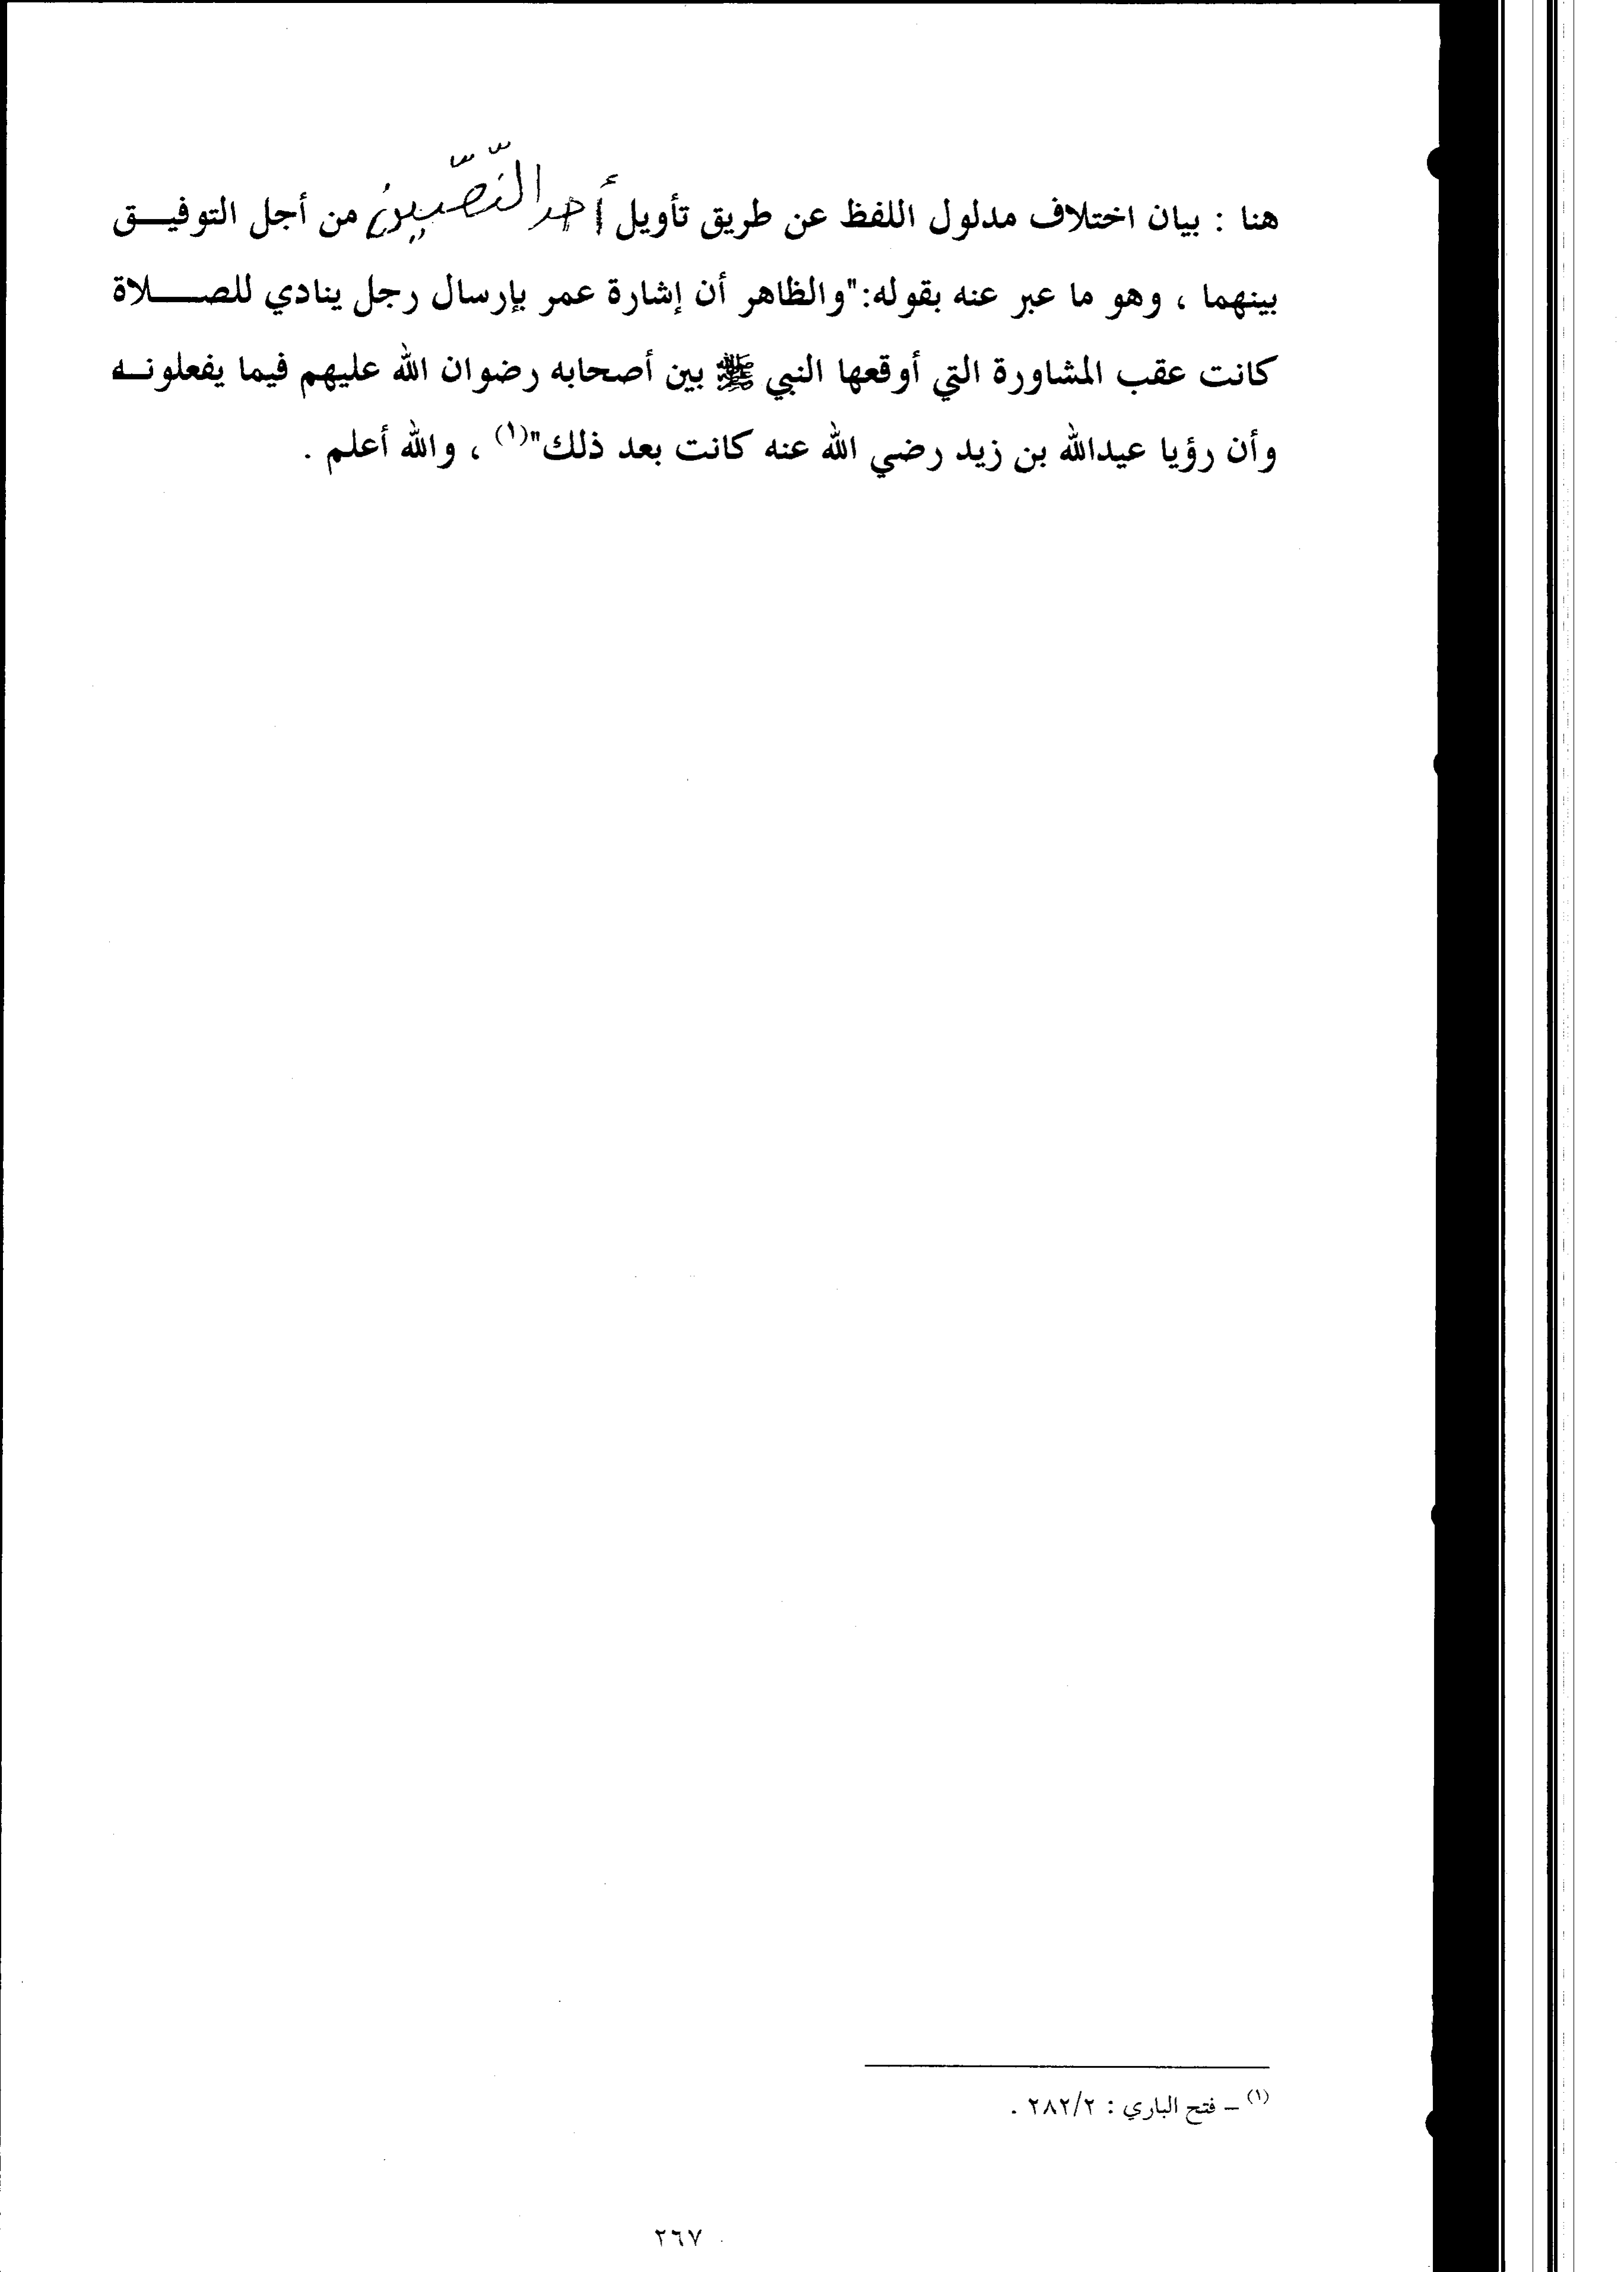 هنا : بيان اختلاف مدلول اللفظ عن طريق تأويل أحد النَّصَّيين من أجل التوفيـــق
بينهما ، وهو ما عبر عنه بقوله:"والظاهر أن إشارة عمر بإرسال رجل ينادي للصـــــلاة
كانت عقب المشاورة التي أوقعها النبي ﷺ بين أصحابه رضوان الله عليهم فيما يفعلونــه
وأن رؤيا عيدالله بن زيد رضي الله عنه كانت بعد ذلك"(١) ، والله أعلم .
(١) – فتح الباري : ٢٨٢/٢ .
٢٦٧